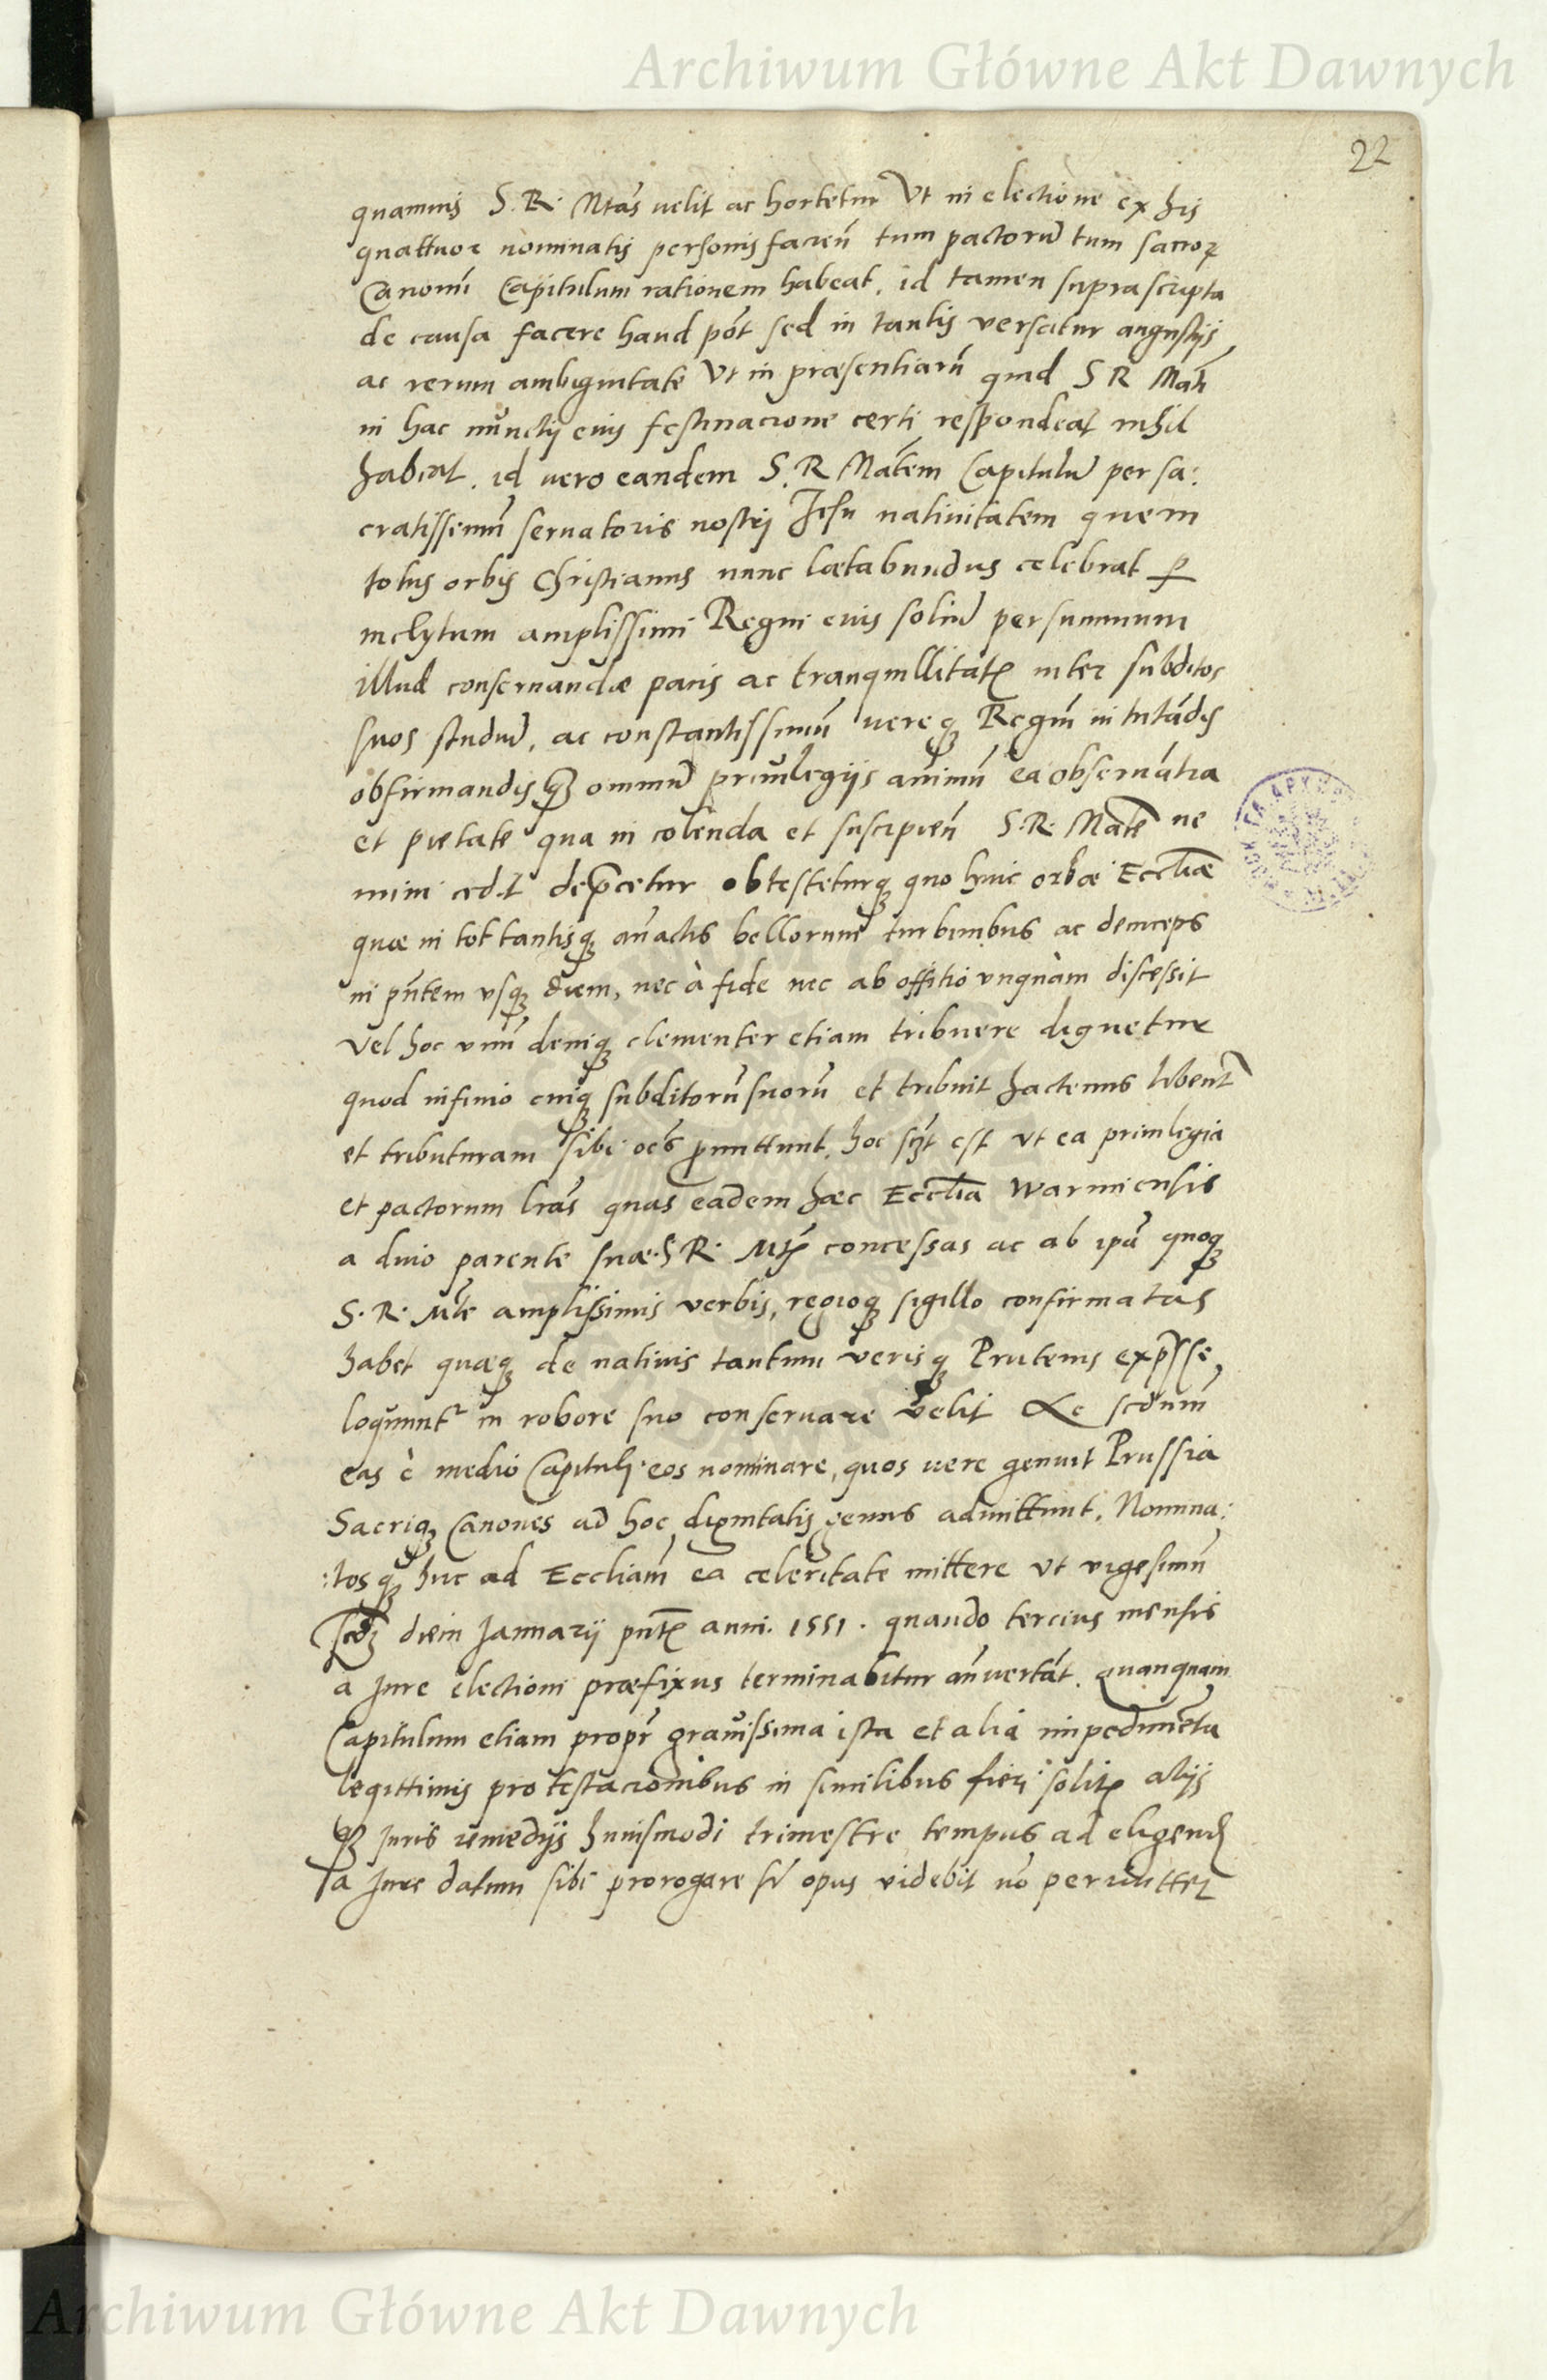 Archiwum Główne Akt Dawnych
22
quamuis S. R. Mtas uelit ac hortetur Vt in electione ex his
quattuor nominatis personis facień tum pactorū tum sacroꝝ
Canonū Capitulum rationem habeat, id tamen suprascripta
de causa facere haud pōt sed in tantis versatur angustijs
ac rerum ambiguitate Vt in præsentiarū quid S R Mati
in hac nunctij eius festinacione certi respondeat nihil
habeat. id vero eandem S. R Matem Capitulū per sa:
cratissimū seruatoris nostri Jesu natiuitatem quem
totus orbis Christianus nunc lætabundus celebrat ꝑ
inclytum amplissimi Regni eius soliū per summum
illud conseruandæ pacis ac tranquillitatꝭ inter subditos
suos studiū, ac constantissimū uereqꝫ Regiū in tutādis
obfirmandisqꝫ omniū priuilegijs animū ea obseruātia
et pietate qua in colenda et suscipień S. R. Mate ne
mini cedit depꝛecetur obtesteturqꝫ quo huic orbæ Eccliæ
quæ in tot tantisqꝫ anactis bellorum turbinibus ac deinceps
in pntem vsqꝫ diem, nec à fide nec ab offitio vnquàm discessit
vel hoc vnū deniqꝫ clementer etiam tribuere dignetur
quod infimo cuiqꝫ subditorū suorū et tribuit hactenus libent
et tributuram sibi oēs ꝓmittunt. hoc scꝫt est vt ea priuilegia
et pactorum lras quas eadem hæc Ecclia Warmiensis
a diuo parente suæ S R. Mtꝭ concessas ac ab ipā quoqꝫ
S. R. Mte amplissimis verbis, regioqꝫ sigillo confirmatas
habet quæqꝫ de natiuis tantum verisqꝫ Prutenis expꝛsse
loquunt in robore suo conseruare velit Ac scdum
eas è medio Capituli eos nominare, quos uere genuit Prussia
Sacriqꝫ Canones ad hoc dignitatis genus admittunt. Nomina:
:tosqꝫ huc ad Eccliam ea celeritate mittere vt vigesimū
scdꝫ diem Januarij pntꝭ anni. 1551. quando tercius mensis
a Jure electioni præfixus terminabitur anuertāt. Quanquam
Capitulum etiam propr̄ grauissima ista et alia impedimēta
legittimis protestacionibus in similibus fieri solitꝭ alijs
qꝫ juris remedijs huiusmodi trimestre tempus ad eligend
a Jure datum sibi prorogare si opus videbit nō permittet
Archiwum Główne Akt Dawnych